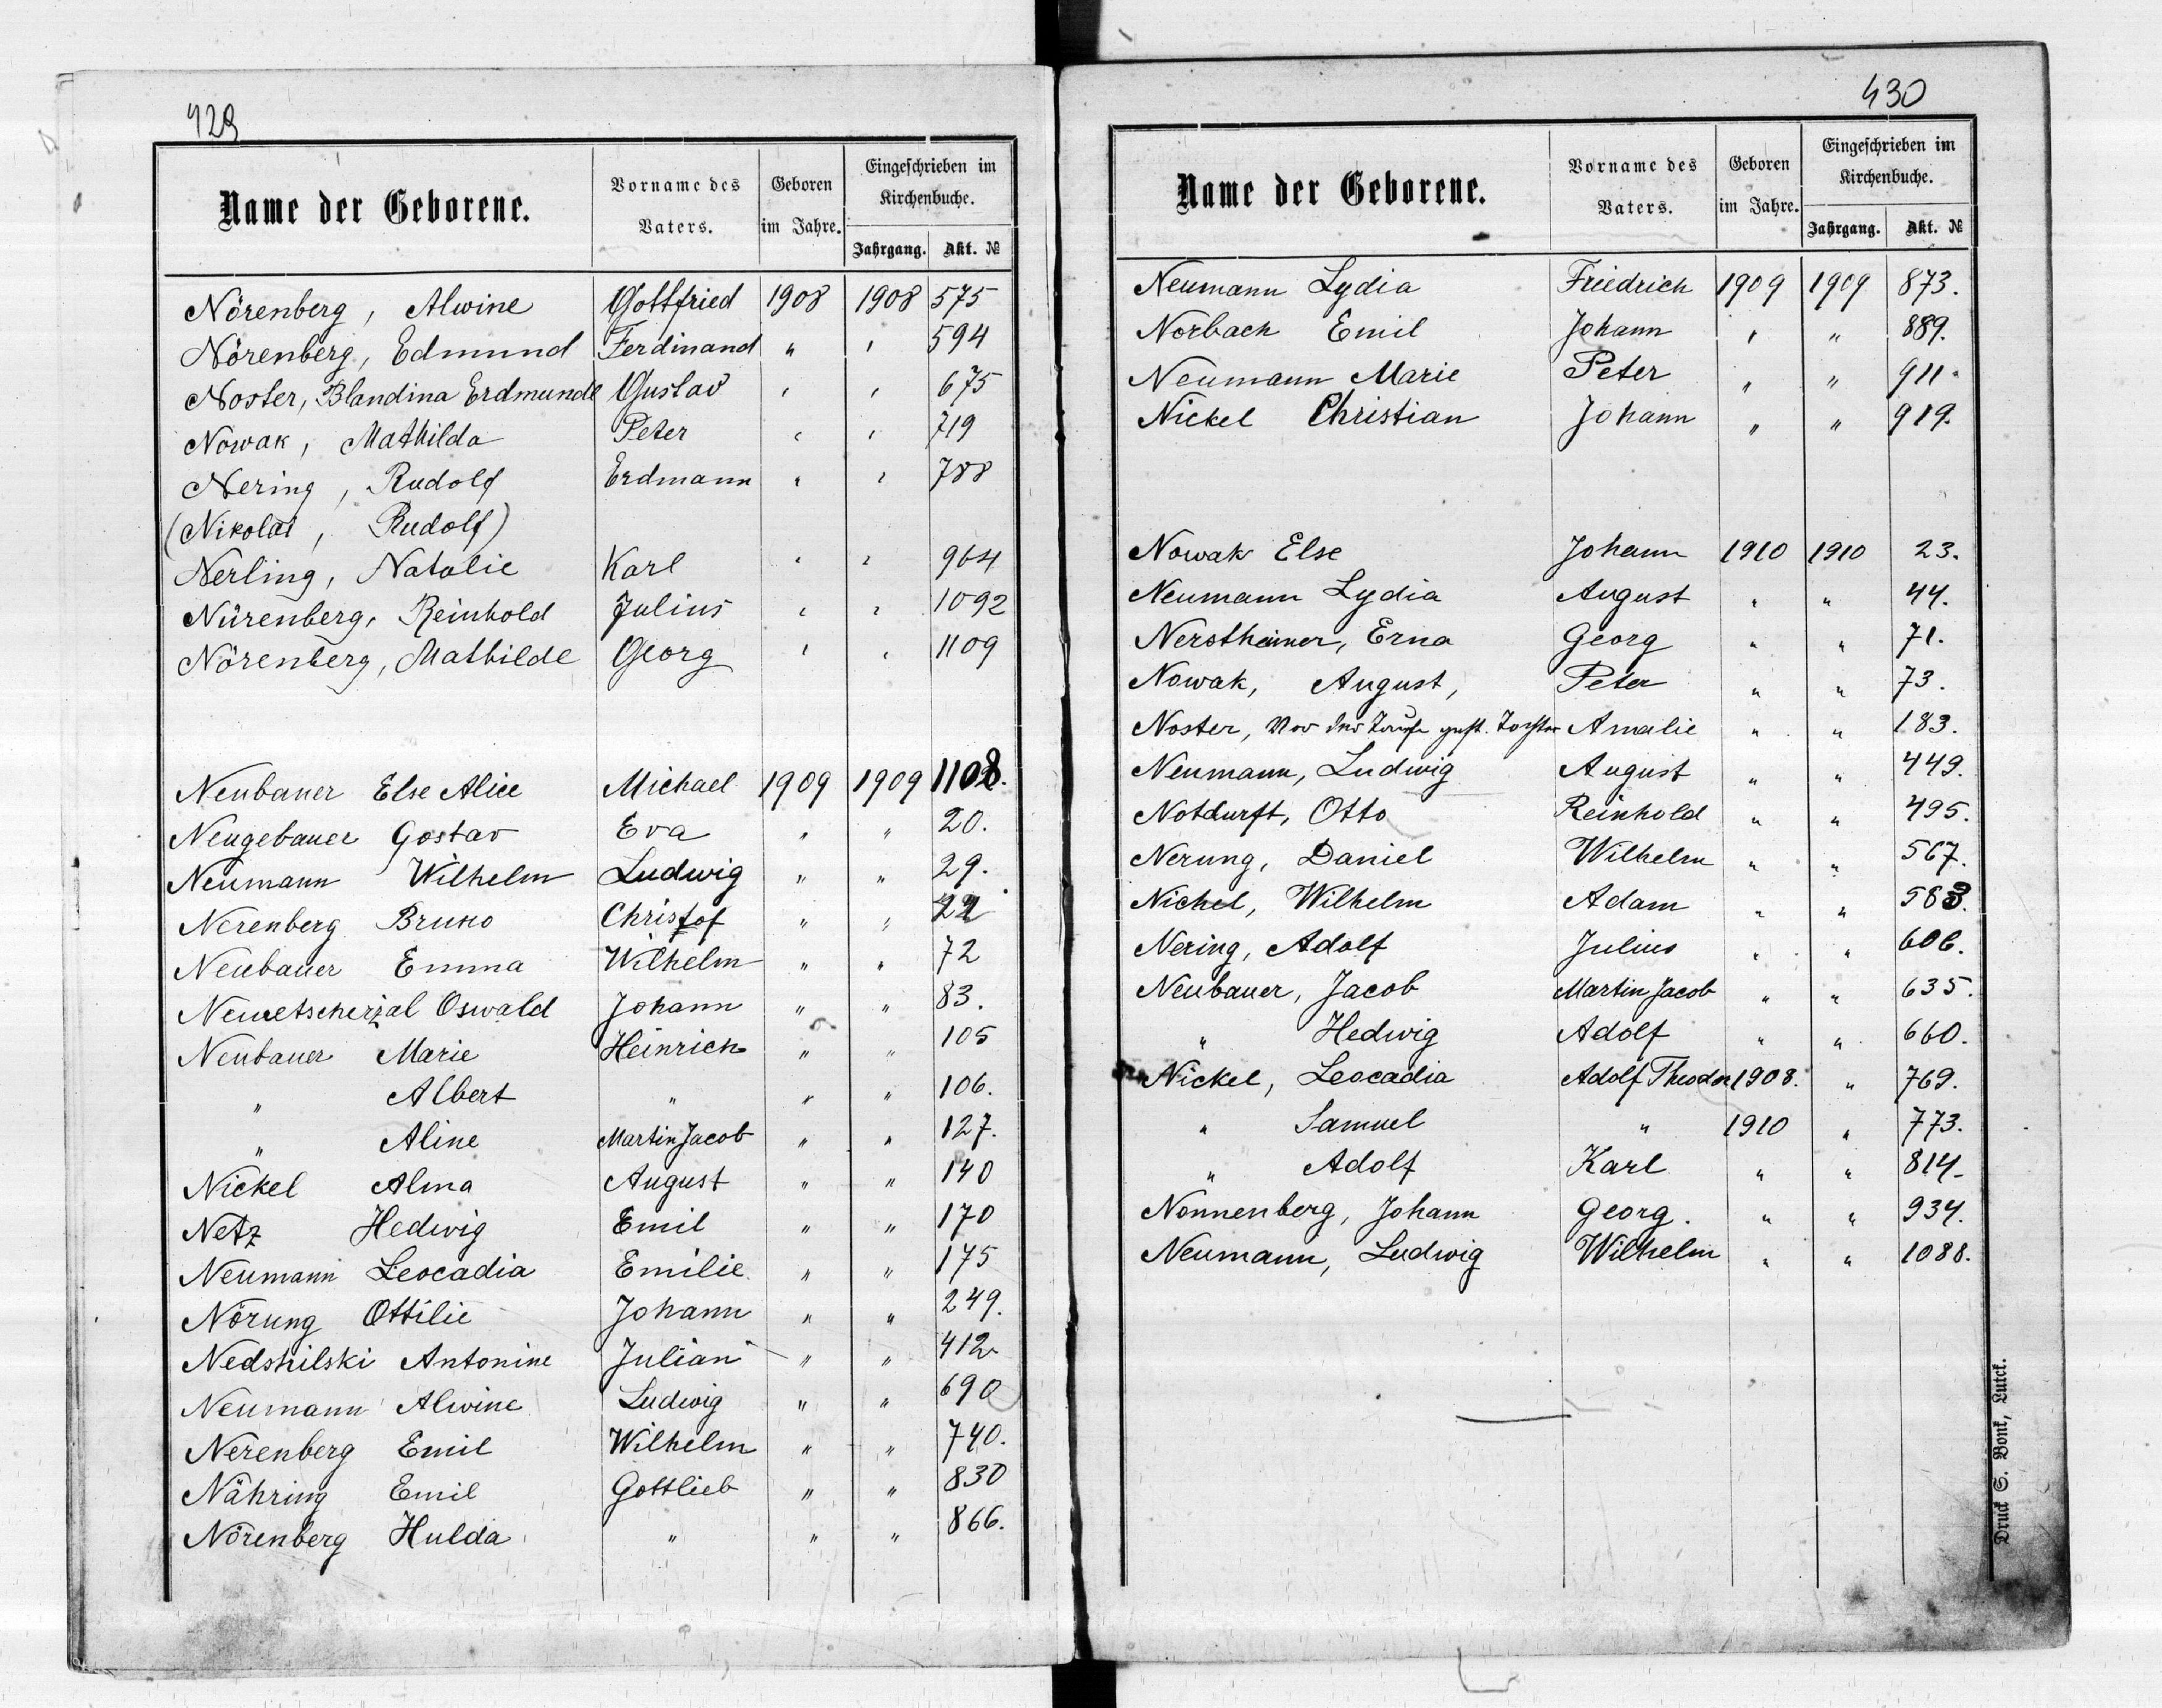 429
Name der Geborene. Vorname des Vaters. Geboren im Jahre. Eingeschrieben im Kirchenbuche. Jahrgang. Akt. №
Nörenberg, Alwine Gottfried 1908 1908 575
Nörenberg, Edmund Ferdinand " " 594
Noster, Blandina Erdmunde Gustav " " 675
Nowak, Mathilda Peter " " 719
Nering, Rudolf Erdmann " " 788
(Nikolai, Rudolf)
Nerling, Natalie Karl " " 964
Nürenberg, Reinhold Julius " " 1092
Nörenberg, Mathilde Georg " " 1109
Neubauer Else Alice Michael 1909 1909 1108.
Neugebauer Gostav Eva " " 20.
Neumann Wilhelm Ludwig " " 29.
Nerenberg Bruno Christof " "
Neubauer Emma Wilhelm " " 72
Oswald Johann " " 83.
Neubauer Marie Heinrich " " 105
" Albert " " " 106.
" Aline Martin Jacob " " 127.
Nickel Alma August " " 140
Netz Hedwig Emil " " 170
Neumann Leocadia Emilie " " 175
Nörung Ottilie Johann " " 249.
Nedshilski Antonine Julian " " 412
Neumann Alwine Ludwig " " 690
Nerenberg Emil Wilhelm " " 740.
Nähring Emil Gottlieb " " 830
Nörenberg Hulda " " " 866.
430
Name der Geborene. Vorname des Vaters. Geboren im Jahre. Eingeschrieben im Kirchenbuche. Jahrgang. Akt. №
Neumann Lydia Friedrich 1909 1909 873.
Norbach Emil Johann " " 889.
Neumann Marie Peter " " 911.
Nickel Christian Johann " " 919.
Nowak Else Johann 1910 1910 23.
Neumann Lydia August " " 44.
Nerstheimer, Erna Georg " " 71.
Nowak, August, Peter " " 73.
Noster, Vor der Taufe gest. Tochter Amalie " " 183.
Neumann, Ludwig August " " 449.
Notdurft, Otto Reinhold " " 495.
Nerung, Daniel Wilhelm " " 567.
Nickel, Wilhelm Adam " " 583.
Nering, Adolf Julius " " 606.
Neubauer, Jacob Martin Jacob " " 635.
" Hedwig Adolf " " 660.
Nickel, Leocadia Adolf Theodor 1908. " 769.
" Samuel " 1910 " 773.
" Adolf Karl " " 814.
Nonnenberg, Johann Georg. " " 934.
Neumann, Ludwig Wilhelm " " 1088.
Druck S. Bonk, Lutck.